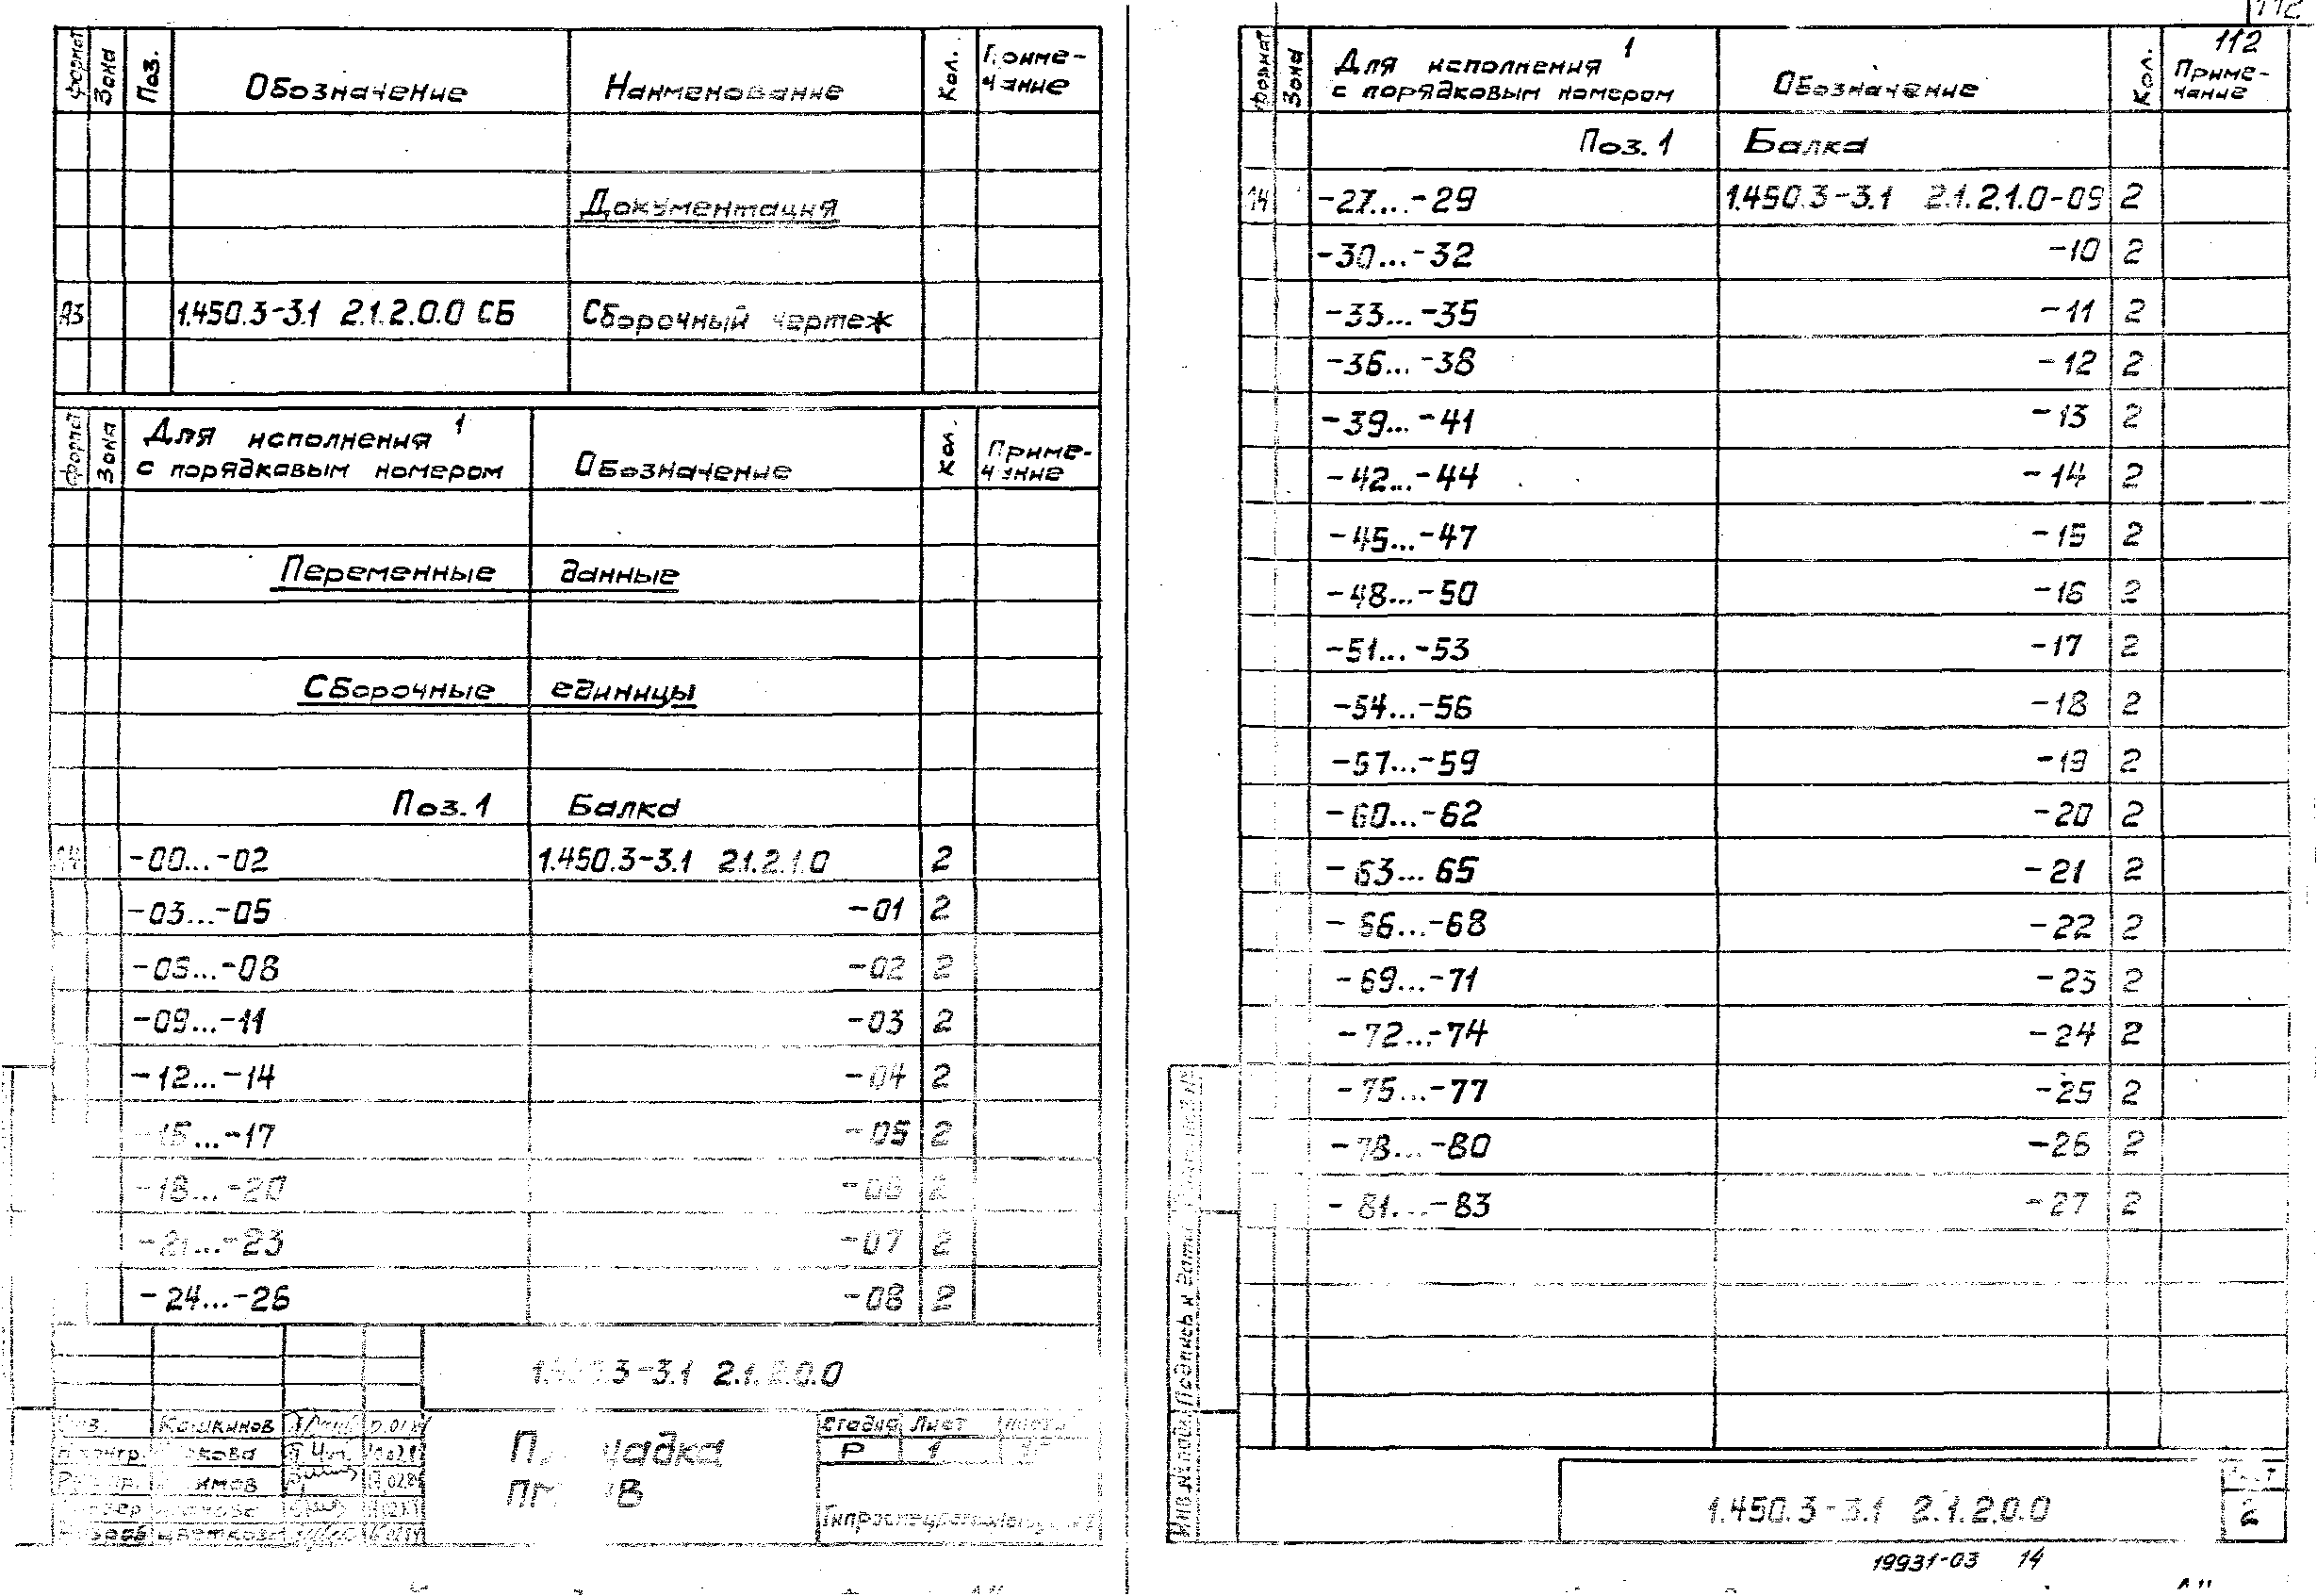 формат Зона Поз. Обозначение Наименование Кол. Приме-
чание
Документация
А3 1.450.3-3.1 2.1.2.0.0 СБ Сборочный чертеж
формат Зона Для исполнения 1
с порядковым номером Обозначение Кол. Приме-
чание
Переменные данные
Сборочные единицы
Поз. 1 Балка
А4 -00...-02 1.450.3-3.1 2.1.2.1.0 2
-03...-05 -01 2
-06...-08 -02 2
-09...-11 -03 2
-12...-14 -04 2
-15...-17 -05 2
-18...-20 -06 2
-21...-23 -07 2
-24...-26 -08 2
1.450.3-3.1 2.1.2.0.0
Кошкинов
Площадка
Стадия Лист
Р 1
112
112
формат Зона Для исполнения 1
с порядковым номером Обозначение Кол. Приме-
чание
Поз. 1 Балка
А4 -27...-29 1.450.3-3.1 2.1.2.1.0-09 2
-30...-32 -10 2
-33...-35 -11 2
-36...-38 -12 2
-39...-41 -13 2
-42...-44 -14 2
-45...-47 -15 2
-48...-50 -16 2
-51...-53 -17 2
-54...-56 -18 2
-57...-59 -19 2
-60...-62 -20 2
-63... 65 -21 2
-66...-68 -22 2
-69...-71 -23 2
-72...-74 -24 2
-75...-77 -25 2
-78...-80 -26 2
-81...-83 -27 2
Подпись и дата
1.450.3-3.1 2.1.2.0.0
2
19931-03 14